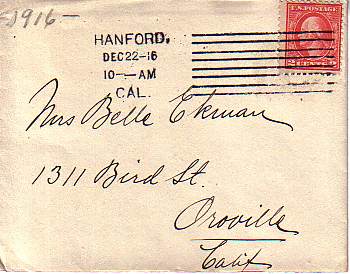 1916-
HANFORD,
DEC 22-16
10-AM
CAL.
U.S. POSTAGE
2 CENTS 2
Mrs Belle Ekman
1311 Bird St.
Oroville
Calif